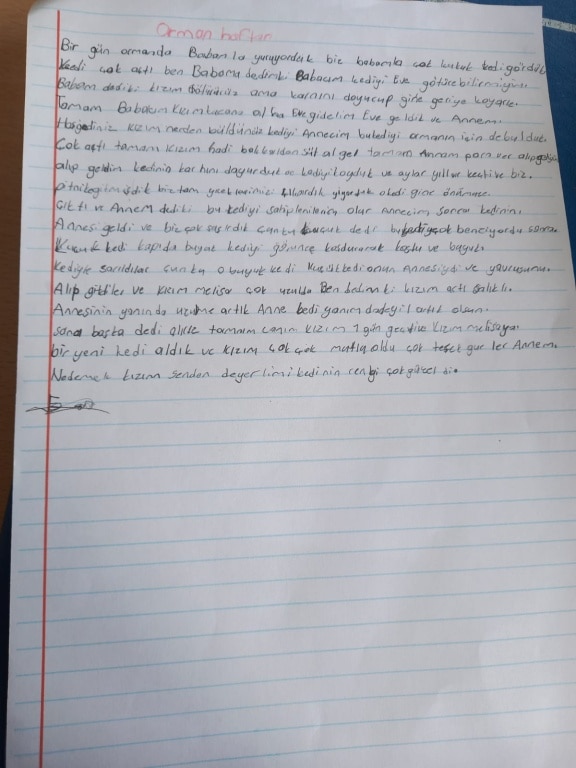 Orman
Bir gün ormanda Babamla yürüyorduk biz babamla çok küçük kedi gördük
Kedi çok açtı ben Babama dedimki Babacım kediyi Eve götürebilirmiyiz
Babam dediki kızım götürürüz ama karnını doyurup gine geriye koyarız.
Tamam Babacım kızım kucana al ha Eve gidelim Eve geldik ve Annem.
Hoşgeldiniz kızım nerden buldunuz kediyi Annecim bu kediyi ormanın için de bulduk.
Çok açtı tamam kızım hadi bakkaldan süt al gel tamam Annem para ver alıp
alıp geldim kedinin karnını doyurduk ve kediyi koyduk ve aylar yıllar geçti ve biz.
pitniğe gitmiştik biz tam yemeklerimizi çıkardık yiyorduk o kedi gine önümüze
çıktı ve Annem dediki bu kediyi sahiplenilenim olur Annecim sonra kedinin
Annesi geldi ve biz çok şaşırdık çünkü küçük kedi bu kediye çok benziyordu sonra
Küçük kedi kapıda büyük kediyi görünce koşdurarak koştu ve büyük
Kediyle sarıldılar çünkü o büyük kedi küçük kedi onun Annesiydi ve yavrusunu.
Alıp gittiler ve kızım melisa çok üzüldü Ben dedimki kızım artı
Annesinin yanında üzülme artık Anne kedi yanım dadeyil artık olsun.
sana başka kedi alırız tamam canım kızım 1 gün geçtive kızım melisaya.
bir yeni kedi aldık ve kızım çok çok mutlu oldu çok teşekgur ler Annem.
Nedemek kızım senden deyerlimi kedinin rengi çok güzel di.